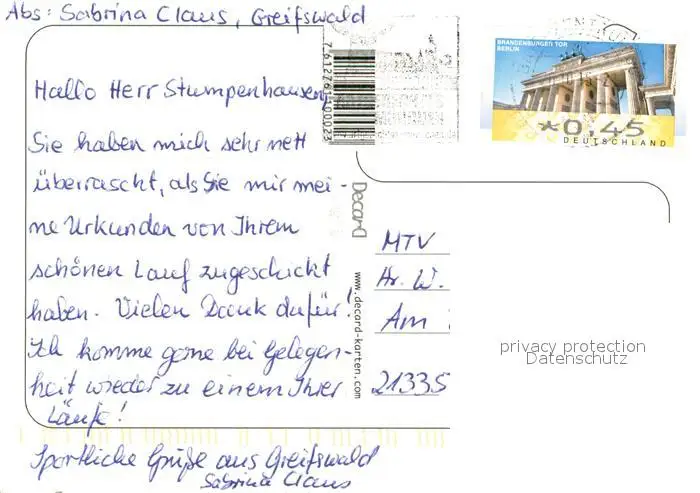 Abs: Sabrina Claus, Greifswald
Hallo Herr Stumpenhausen,
Sie haben mich sehr nett
überrascht, als Sie mir mei-
ne Urkunden von Ihrem
schönen Lauf zugeschickt
haben. Vielen Dank dafür!
Ich komme gerne bei Gelegen-
heit wieder zu einem Ihrer
Läufe!
Sportliche Grüße aus Greifswald
Sabrina Claus
BRANDENBURGER TOR
BERLIN
*0,45
DEUTSCHLAND
Decard
www.decard-karten.com
MTV
Hr. W.
Am
21335
privacy protection
Datenschutz